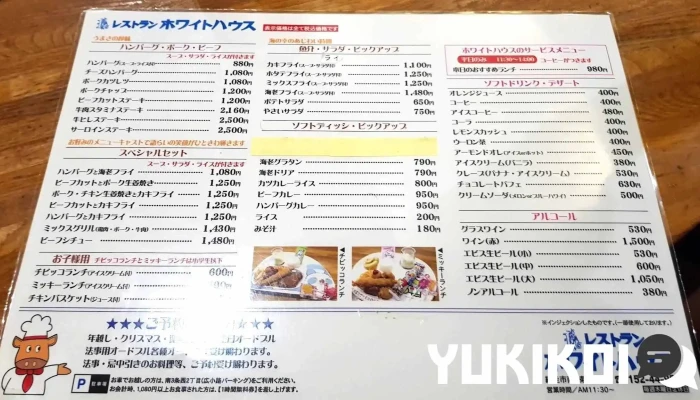 レストラン ホワイトハウス
表示価格は全て税込価格です
うまさの領域
ハンバーグ・ポーク・ビーフ
スープ・サラダ・ライスが付きます
ハンバーグ(スープ・ライス付) 880円
チーズハンバーグ 1,080円
ポークカツレツ 1,080円
ポークチャップ 1,200円
ビーフカットステーキ 1,200円
牛肉スタミナステーキ 2,160円
牛ヒレステーキ 2,500円
サーロインステーキ 2,500円
お好みのメニューキャストで語らいの笑顔がひときわ輝きます
スペシャルセット
スープ・サラダ・ライスが付きます
ハンバーグと海老フライ 1,080円
ビーフカットとポーク生姜焼き 1,250円
ポーク・チキン生姜焼きとカキフライ 1,250円
ビーフカットとカキフライ 1,250円
ハンバーグとカキフライ 1,250円
ミックスグリル(鶏肉・ポーク・牛肉) 1,430円
ビーフシチュー 1,480円
お子様用 チビッコランチとミッキーランチは小学生以下
チビッコランチ(アイスクリーム付) 600円
ミッキーランチ(アイスクリーム付)
チキンバスケット(ジュース付)
海の幸のあじわい特選
魚介・サラダ・ピックアップ
フライ
カキフライ(スープ・サラダ付) 1,100円
ホタテフライ(スープ・サラダ付) 1,250円
ミックスフライ(スープ・サラダ付) 1,250円
海老フライ(スープ・サラダ付) 1,480円
ポテトサラダ 650円
やさいサラダ 750円
ソフトディッシ・ピックアップ
海老グラタン 790円
海老ドリア 790円
カツカレーライス 800円
ビーフカレー 950円
ハンバーグカレー 950円
ライス 200円
みそ汁 180円
◀チビッコランチ
◀ミッキーランチ
ホワイトハウスのサービスメニュー
平日のみ 11:30~14:00 コーヒーがつきます
平日のおすすめランチ 980円
ソフトドリンク・デザート
オレンジジュース 400円
コーヒー 400円
アイスコーヒー 480円
コーラ 400円
レモンスカッシュ 400円
ウーロン茶 400円
アーモンドオレ(アイスorホット) 450円
アイスクリーム(バニラ) 380円
クレープ(バナナ・アイスクリーム) 530円
チョコレートパフェ 630円
クリームソーダ(メロンorブルーハワイ) 500円
アルコール
グラスワイン 530円
ワイン(赤) 1,500円
エビス生ビール(小) 530円
エビス生ビール(中) 600円
エビス生ビール(大) 1,050円
ノンアルコール 380円
※インジェクションしたものです。(一部使用しております。)
★★★ご予
年越し・クリスマス・
オードブル
法事用オードブル各種オー
け賜わります。
法事・忌中引きのお料理等、ご予
け賜わります。
P 駐車場
お車でお越しの方は、南3条西2丁目(広小路パーキング)をご利用ください。
お会計時、1,080円以上お食事された方は、【1時間無料券】を差し上げます。
レストラン
営業時間/AM11:30~
152-44
YUKIKOI